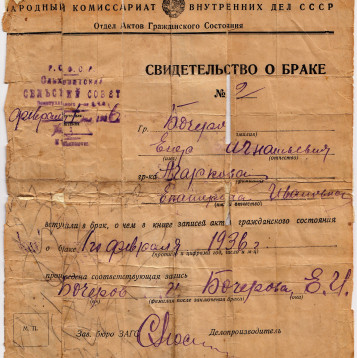 НАРОДНЫЙ КОМИССАРИАТ ВНУТРЕННИХ ДЕЛ СССР
Отдел Актов Гражданского Состояния
Р.С.Ф.С.Р.
СЕЛЬСКИЙ СОВЕТ
СВИДЕТЕЛЬСТВО О БРАКЕ
№ 2
февраля 1936
Гр. Бочеров
(фамилия)
Егор Игнатьевич
(имя) (отчество)
гр-ка Агаркова
Ивановна
(имя и отчество)
вступили в брак, о чем в книге записей актов гражданского состояния
о браке февраля 1936 г.
(прописью и цифрами год, число и м-ц)
произведена соответствующая запись
Бочеров и Бочерова, Е.И.
(он) (фамилии после заключения брака) (она)
М. П.
Зав. бюро ЗАГС Делопроизводитель